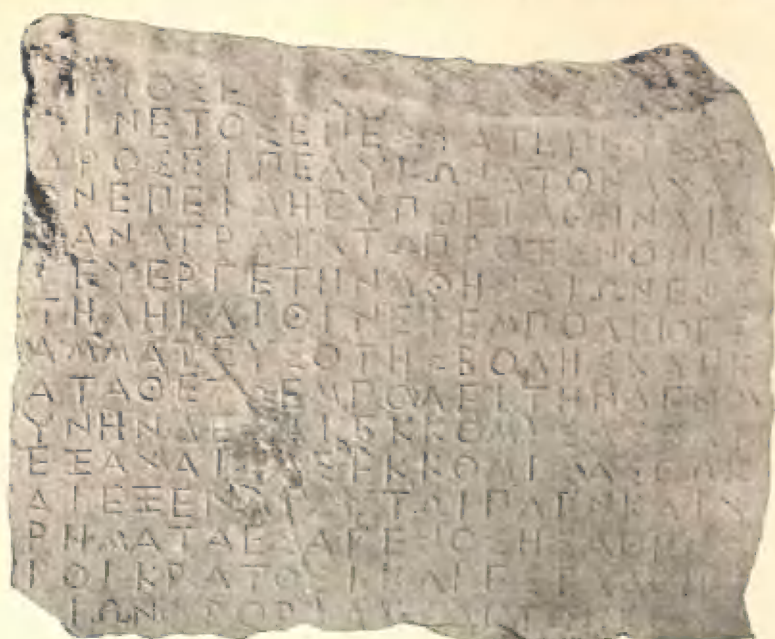 ΙΝΕΤΟΣΕΠΕΣΤΑΤΕΠΕΙ
ΔΡΟΣΕΙΠΕΛΥΚΩΝΑΤΟΝΑΧΑ
ΝΕΠΕΙΔΗΕΥΠΟΕΙΑΘΗΝΑΙ
ΑΝΑΓΡΑΨΑΤΩΠΡΟΞΕΝΟΝΚ
ΕΥΕΡΓΕΤΗΝΑΘΗΝΑΙΩΝΕΝΣ
ΤΗΛΗΙΛΙΘΙΝΕΙΕΜΠΟΛΕΙΟΓ
ΑΜΜΑΤΕΥΣΟΤΗΣΒΟΛΗΣΚΑΙ
ΑΤΑΘΕΤΩΕΜΠΟΛΕΙΤΗΝΔΕΝΑ
ΥΝΗΝΔΕΙΤΑΙΕΚΚΟΜΙΣΑΣ
ΕΞΑΧΑΙΙΑΣΕΚΚΟΜΙΣΑΣΘΩ
ΑΙΕΞΕΝΑΙΑΥΤΩΙΠΛΕΝΚΑΙΧ
ΡΗΜΑΤΑΕΣΑΓΕΝΟΣΗΣΑΘΗΝ
ΙΟΙΚΡΑΤΟΣΙΚΑΙΕΣΤΑΑΘΗ
ΙΩΝΦΡΟΡΙΑ